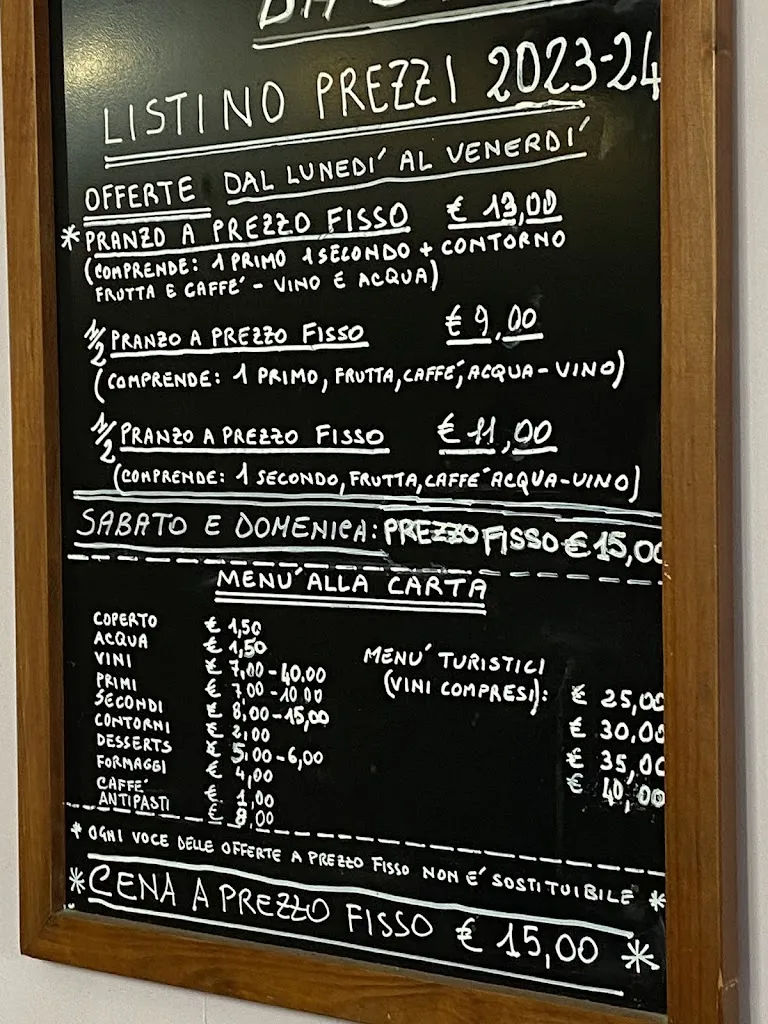 LISTINO PREZZI 2023-24
OFFERTE DAL LUNEDI' AL VENERDI'
* PRANZO A PREZZO FISSO € 13,00
(COMPRENDE: 1 PRIMO 1 SECONDO + CONTORNO
FRUTTA E CAFFE' - VINO E ACQUA)
1/2 PRANZO A PREZZO FISSO € 9,00
(COMPRENDE: 1 PRIMO, FRUTTA, CAFFE', ACQUA-VINO)
1/2 PRANZO A PREZZO FISSO € 11,00
(COMPRENDE: 1 SECONDO, FRUTTA, CAFFE' ACQUA-VINO)
SABATO E DOMENICA: PREZZO FISSO € 15,00
MENU' ALLA CARTA
COPERTO € 1,50
ACQUA € 1,50
VINI € 7,00-40.00
PRIMI € 7,00-10.00
SECONDI € 8,00-15,00
CONTORNI € 2,00
DESSERTS € 5,00-6,00
FORMAGGI € 4,00
CAFFE' € 1,00
ANTIPASTI € 8,00
MENU' TURISTICI
(VINI COMPRESI): € 25,00
€ 30,00
€ 35,00
€ 40,00
* OGNI VOCE DELLE OFFERTE A PREZZO FISSO NON E' SOSTITUIBILE *
* CENA A PREZZO FISSO € 15,00 *